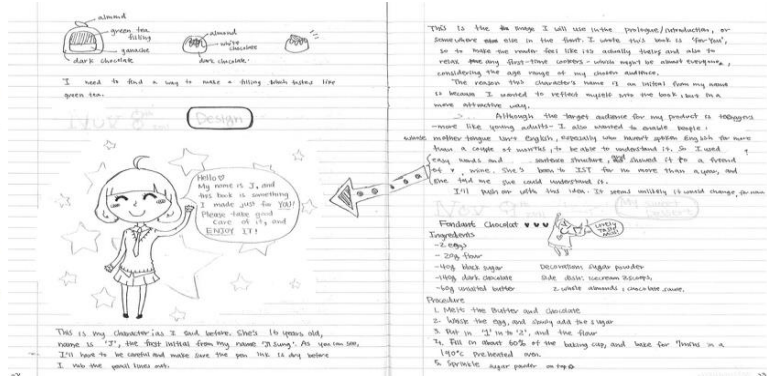 almond
green tea
filling
ganache
dark chocolate
almond
white
chocolate
dark chocolate
I need to find a way to make a filling which tastes like
green tea.
Nov 8th
Design
Hello ♡
My name is J, and
this book is something
I made just for YOU!
Please take good
care of it, and
ENJOY IT!
This is my character (as I said before. She's 16 years old,
name is 'J', the first initial from my name 'Ji sung'. As you can see,
I'll have to be careful and make sure the pen ink is dry before
I rub the pencil lines out.
This is the image I will use in the prologue/introduction, or
somewhere else in the front. I wrote this book is 'for You',
so to make the reader feel like its actually theirs and also to
relax any first-time cookers - which might be almost everyone,
considering the age range of my chosen audience.
The reason this character's name is an initial from my name
is because I wanted to reflect myself into the book, but in a
more attractive way.
Although the target audience for my product is teenagers
-more like young adults- I also wanted to enable people,
whose mother tongue isn't English, especially who haven't spoken English for more
than a couple of months, to be able to understand it. So I used
easy words and sentence structure, showed it to a friend
of mine. She's been to IST for no more than a year, and
she told me she could understand it.
I'll push on with this idea. It seems unlikely it would change, for now.
Nov 9th
My sweet
Fondant Chocolat ♥ ♥ ♥
Ingredients
-2 eggs
- 20g flour
-40g black sugar
-140g dark chocolate
-60g unsalted butter
Decoration: sugar powder
Side dish: icecream
2 whole almonds, chocolate sauce.
Procedure
1. Melt the butter and chocolate
2. Whisk the egg, and slowly add the sugar
3. Put in '1' in to '2', and the flour
4. Fill in about 60% of the baking cup, and bake for 7mins in a
190°C preheated oven.
5. Sprinkle sugar powder on top